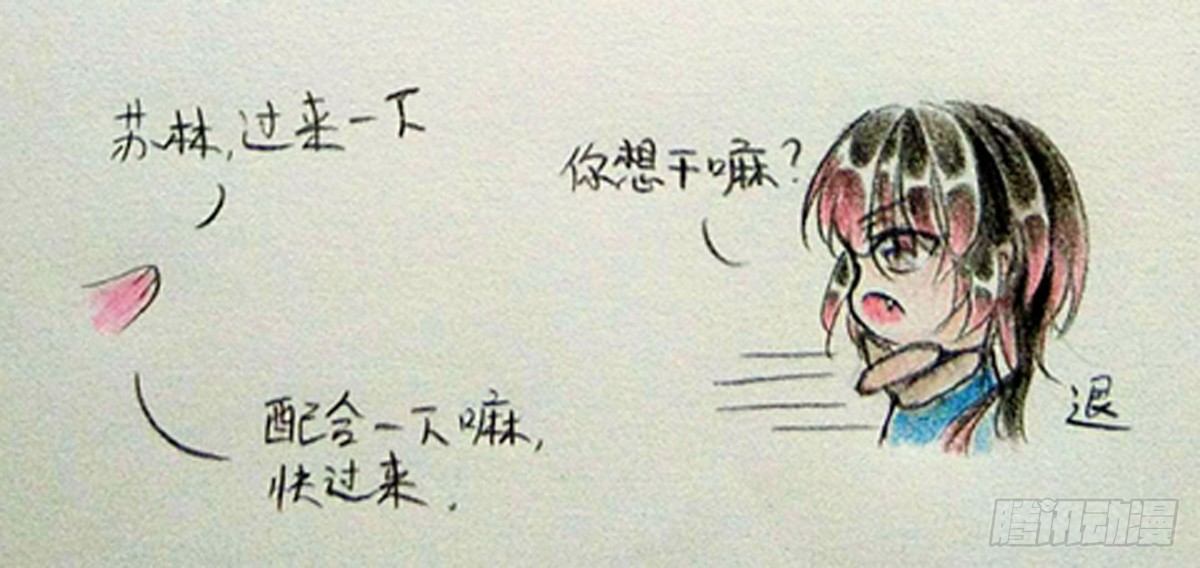 苏林,过来一下
你想干嘛?
配合一下嘛,
快过来.
退
腾讯动漫